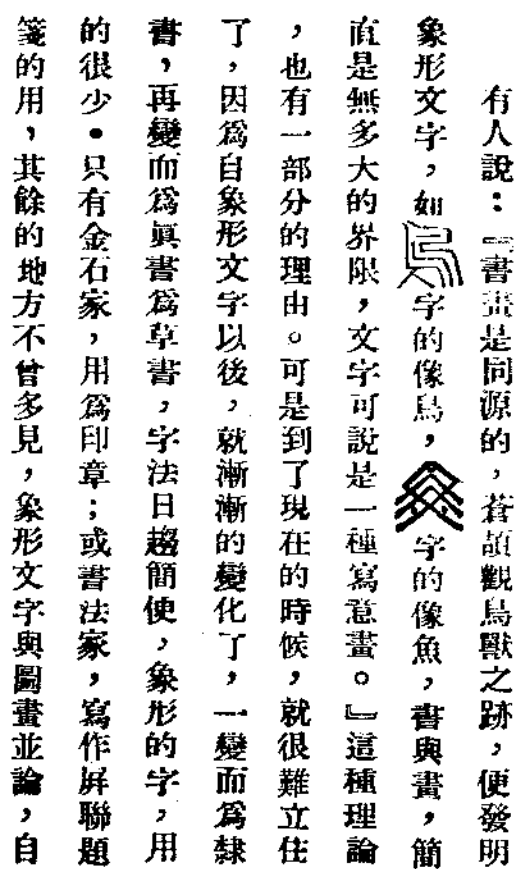 有人說：『書畫是同源的，蒼頡觀鳥獸之跡，便發明
象形文字，如字的像鳥，字的像魚，書與畫，簡
直是無多大的界限，文字可說是一種寫意畫。』這種理論
，也有一部分的理由。可是到了現在的時候，就很難立住
了，因爲自象形文字以後，就漸漸的變化了，一變而爲隸
書，再變而爲眞書爲草書，字法日趨簡便，象形的字，用
的很少。只有金石家，用爲印章；或書法家，寫作屛聯題
箋的用，其餘的地方不曾多見，象形文字與圖畫並論，自